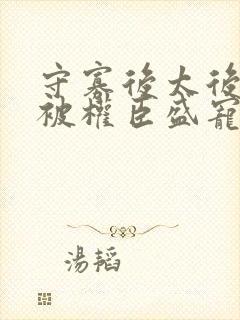 守寡後太後
被權臣盛寵
湯韜